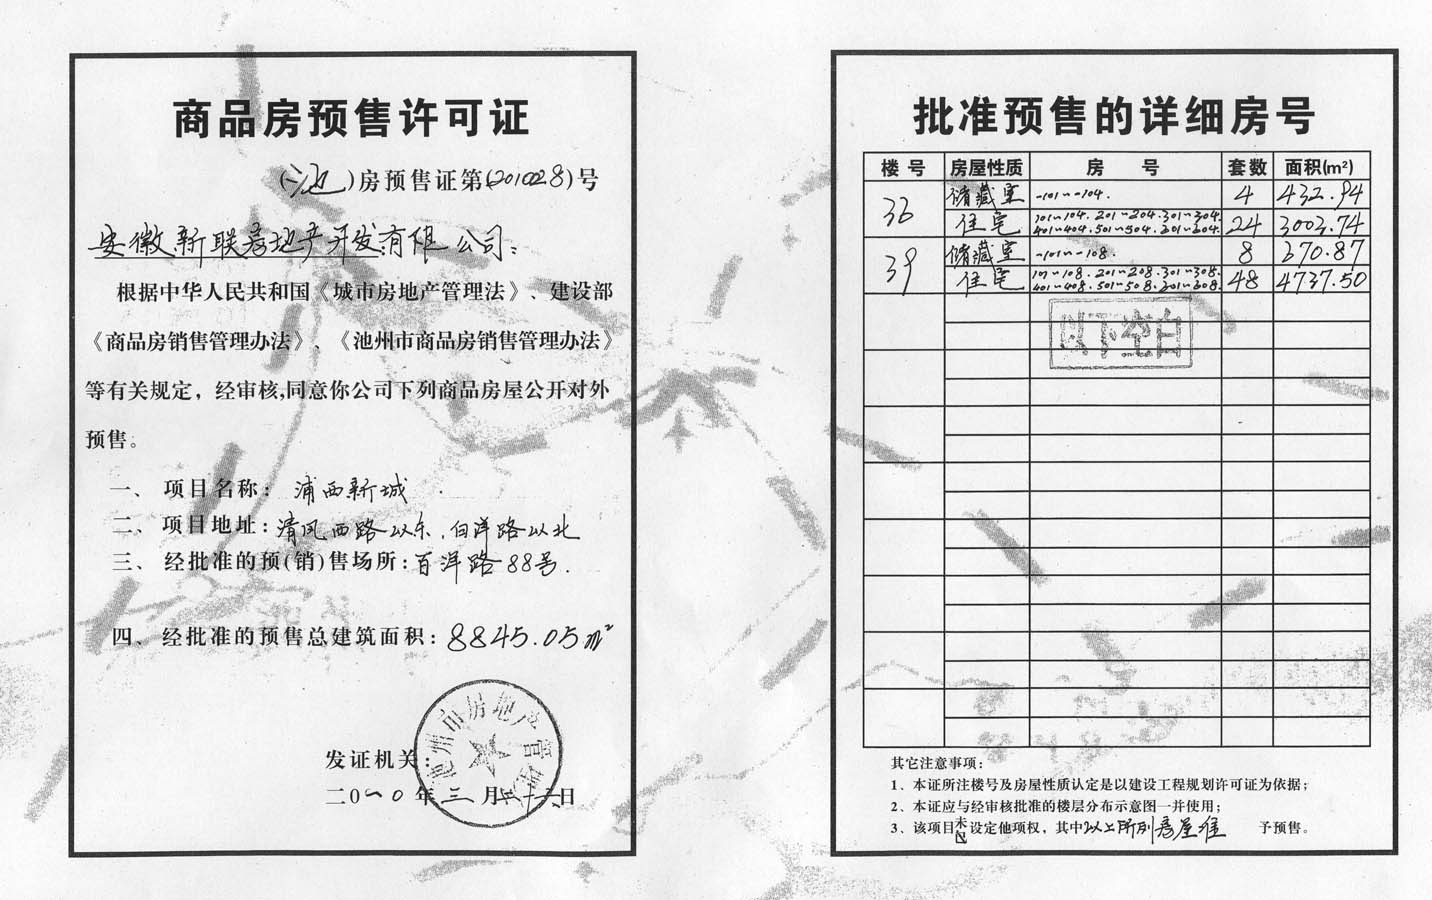 商品房预售许可证
(池)房预售证第(201028)号
安徽新联房地产开发有限公司：
根据中华人民共和国《城市房地产管理法》、建设部
《商品房销售管理办法》、《池州市商品房销售管理办法》
等有关规定，经审核,同意你公司下列商品房屋公开对外
预售。
一、项目名称：浦西新城
二、项目地址：清风西路以东,白洋路以北
三、经批准的预(销)售场所：百洋路88号.
四、经批准的预售总建筑面积：8845.05m²
池州市房地产管理
发证机关：
二0一0年三月二十二日
批准预售的详细房号
楼号 房屋性质 房号 套数 面积(m²)
36 储藏室 -101~-104. 4 432.94
住宅 101~104.201~204.301~304.
401~404.501~504. 24 3003.74
39 储藏室 -101~-108. 8 670.87
住宅 101~108.201~208.301~308.
401~408.501~508. 48 4737.50
以下空白
其它注意事项：
1、本证所注楼号及房屋性质认定是以建设工程规划许可证为依据；
2、本证应与经审核批准的楼层分布示意图一并使用；
3、该项目未设定他项权，其中以上所列房屋准予预售。